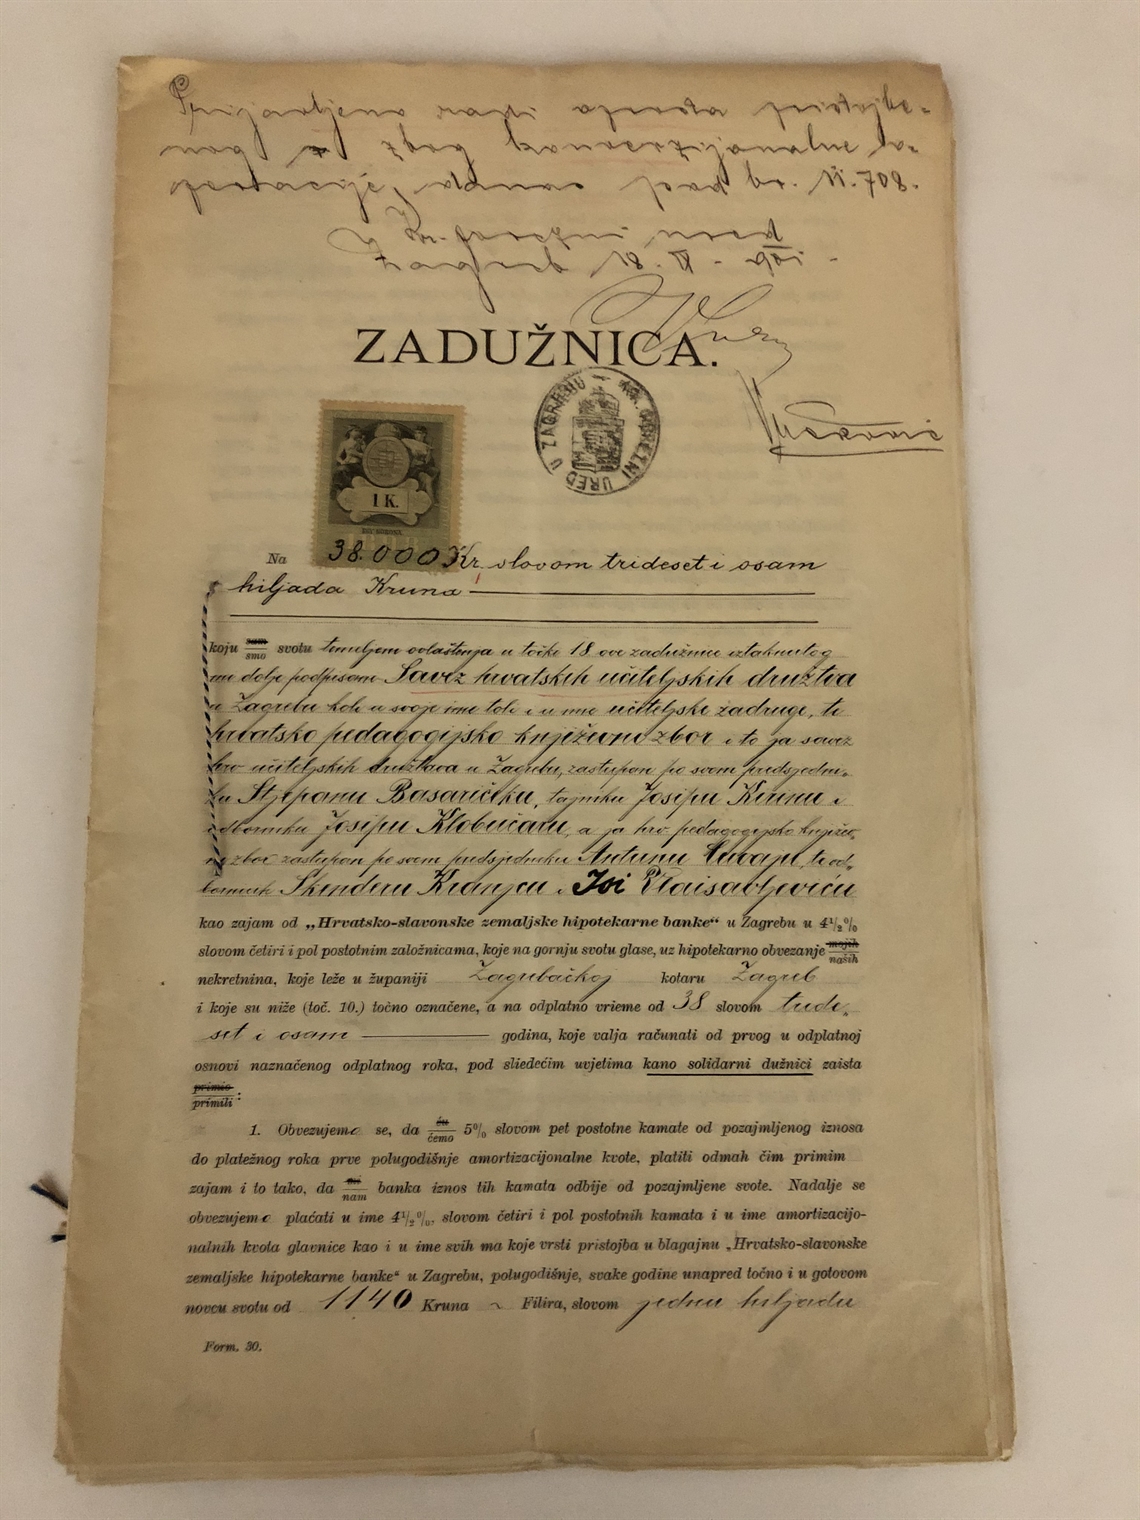 Prijavljeno radi oprosta pristojbe-
nog zbog konverzijonalne o-
peracije, danas pod br. VI. 708.
Kr. porezni ured
Zagreb 18. IX - 901 -
ZADUŽNICA.
KR. POREZNI URED U ZAGREBU
1 K.
Na 38.000 Kr. slovom trideset i osam
hiljada Kruna
koju sam/smo svotu temeljem ovlaštenja u točki 18 ove zadužnice iztaknutog
mi dolje podpisani Savez hrvatskih učiteljskih družtva
u Zagrebu koli u svoje ime toli i u ime učiteljske zadruge, te
hrvatsko pedagogijsko književni zbor i to ja savez
hrv učiteljskih družtava u Zagrebu, zastupan po svom predsjedni-
ku Stjepanu Basaričeku, tajniku Josipu Kirinu i
odborniku Josipu Klobučaru, a ja hrv. pedagogijsko književ-
ni zbor zastupan po svom predsjedniku Antunu Cuvaju, te od-
bornicih Skenderu Kranjcu i Joci Vlaisavljeviću
kao zajam od „Hrvatsko-slavonske zemaljske hipotekarne banke“ u Zagrebu u 4½%
slovom četiri i pol postotnim založnicama, koje na gornju svotu glase, uz hipotekarno obvezanje mojih/naših
nekretnina, koje leže u županiji Zagrebačkoj kotaru Zagreb
i koje su niže (toč. 10.) točno označene, a na odplatno vrieme od 38 slovom tride-
set i osam godina, koje valja računati od prvog u odplatnoj
osnovi naznačenog odplatnog roka, pod sliedećim uvjetima kano solidarni dužnici zaista
primio/primili:
1. Obvezujemo se, da ću/ćemo 5% slovom pet postotne kamate od pozajmljenog iznosa
do platežnog roka prve polugodišnje amortizacijonalne kvote, platiti odmah čim primim
zajam i to tako, da mi/nam banka iznos tih kamata odbije od pozajmljene svote. Nadalje se
obvezujemo plaćati u ime 4½%, slovom četiri i pol postotnih kamata i u ime amortizacijo-
nalnih kvota glavnice kao i u ime svih ma koje vrsti pristojba u blagajnu „Hrvatsko-slavonske
zemaljske hipotekarne banke“ u Zagrebu, polugodišnje, svake godine unapred točno i u gotovom
novcu svotu od 1140 Kruna ~ Filira, slovom jednu hiljadu
Form. 30.